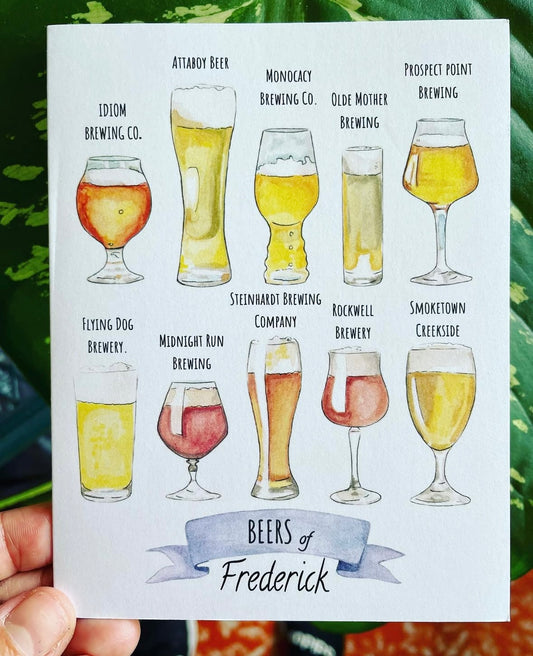 IDIOM
BREWING CO.
ATTABOY BEER
MONOCACY
BREWING CO.
OLDE MOTHER
BREWING
PROSPECT POINT
BREWING
FLYING DOG
BREWERY.
MIDNIGHT RUN
BREWING
STEINHARDT BREWING
COMPANY
ROCKWELL
BREWERY
SMOKETOWN
CREEKSIDE
BEERS of
Frederick